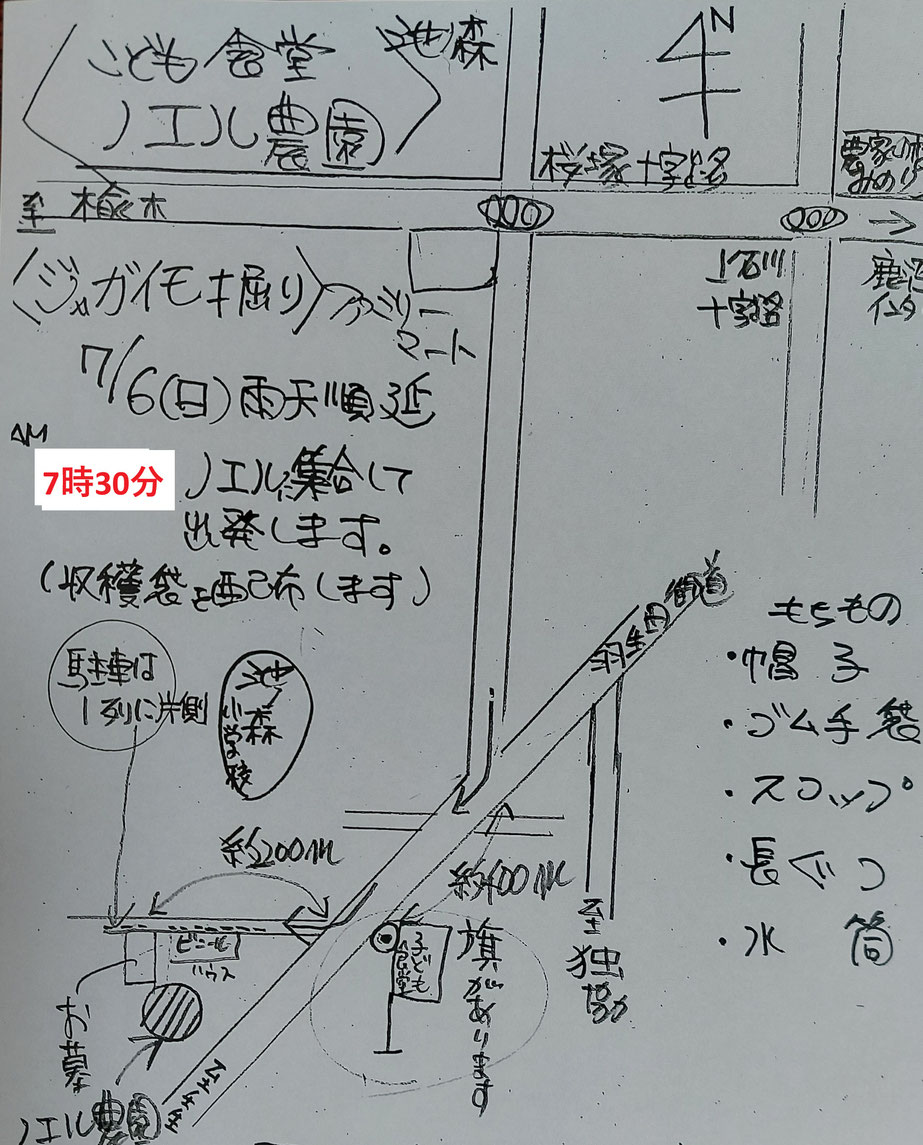 こども食堂
ノエル農園
池ノ森
N
桜塚十字路
農家の村
みのり
至楡木
上石川
十字路
鹿沼
インター
〈ジャガイモ掘り〉
ファミリー
マート
7/6(日)雨天順延
AM
7時30分
ノエルに集合して
出発します。
(収穫袋を配布します)
駐車は
1列に片側
池ノ森
小学校
羽生田街道
もちもの
・帽子
・ゴム手袋
・スコップ
・長ぐつ
・水筒
約200m
約400m
至
独協
子ども
食堂
旗があります
ビニール
ハウス
お墓
ノエル農園
至壬生